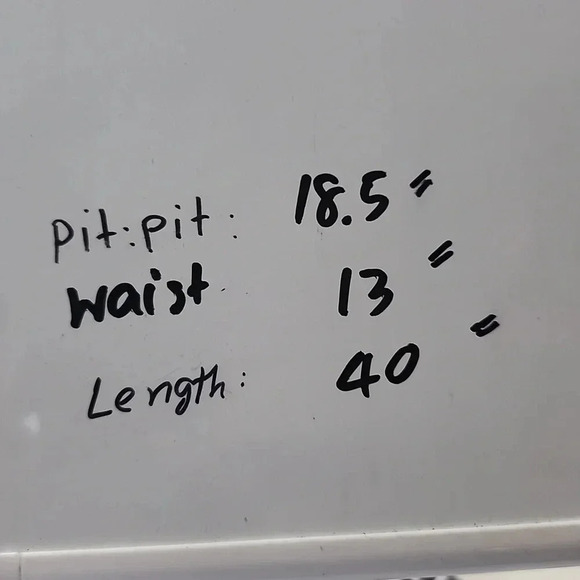 pit:pit: 18.5"
waist 13"
Length: 40"